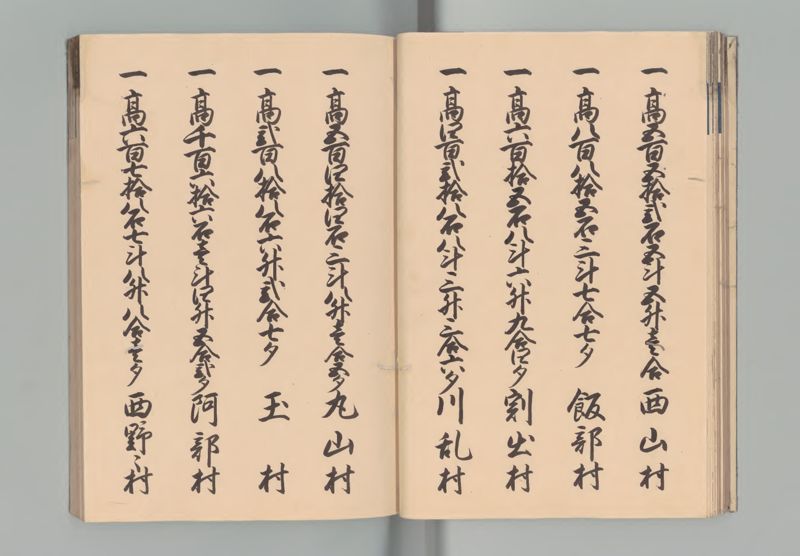 一 高五百五拾弐石五斗五升壱合 西山村
一 高八百八拾五石三斗七合七夕 飯部村
一 高六百拾五石八斗六升九合四夕 割出村
一 高四百弐拾八石八斗三升三合六夕 川乱村
一 高五百四拾四石三斗八升壱合五夕 丸山村
一 高弐百八拾八石六升弐合七夕 玉村
一 高千百六拾六石壱斗四升五合弐夕 阿部村
一 高六百七拾八石七斗八升八合壱夕 西野々村